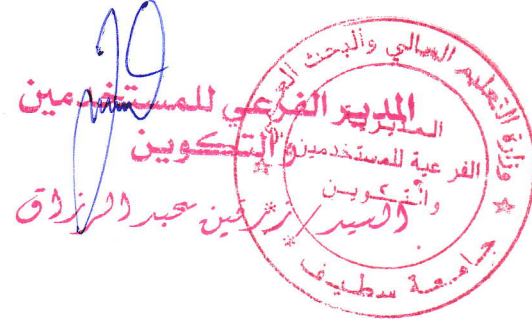 المدير الفرعي للمستخدمين
والتكوين
السيد/ زرقين عبد الرزاق
وزارة التعليم العالي والبحث
المديرية
الفرعية للمستخدمين
والتكوين
جامعة سطيف